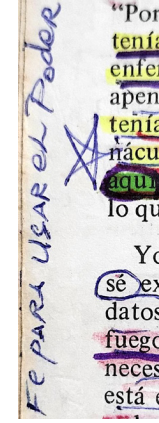 Fe PARA USAR el PodeR
“Por
tenía
enfer
apen
tenía
nácu
aquí
lo qu
Yo
sé ex
datos
fuego
neces
está e